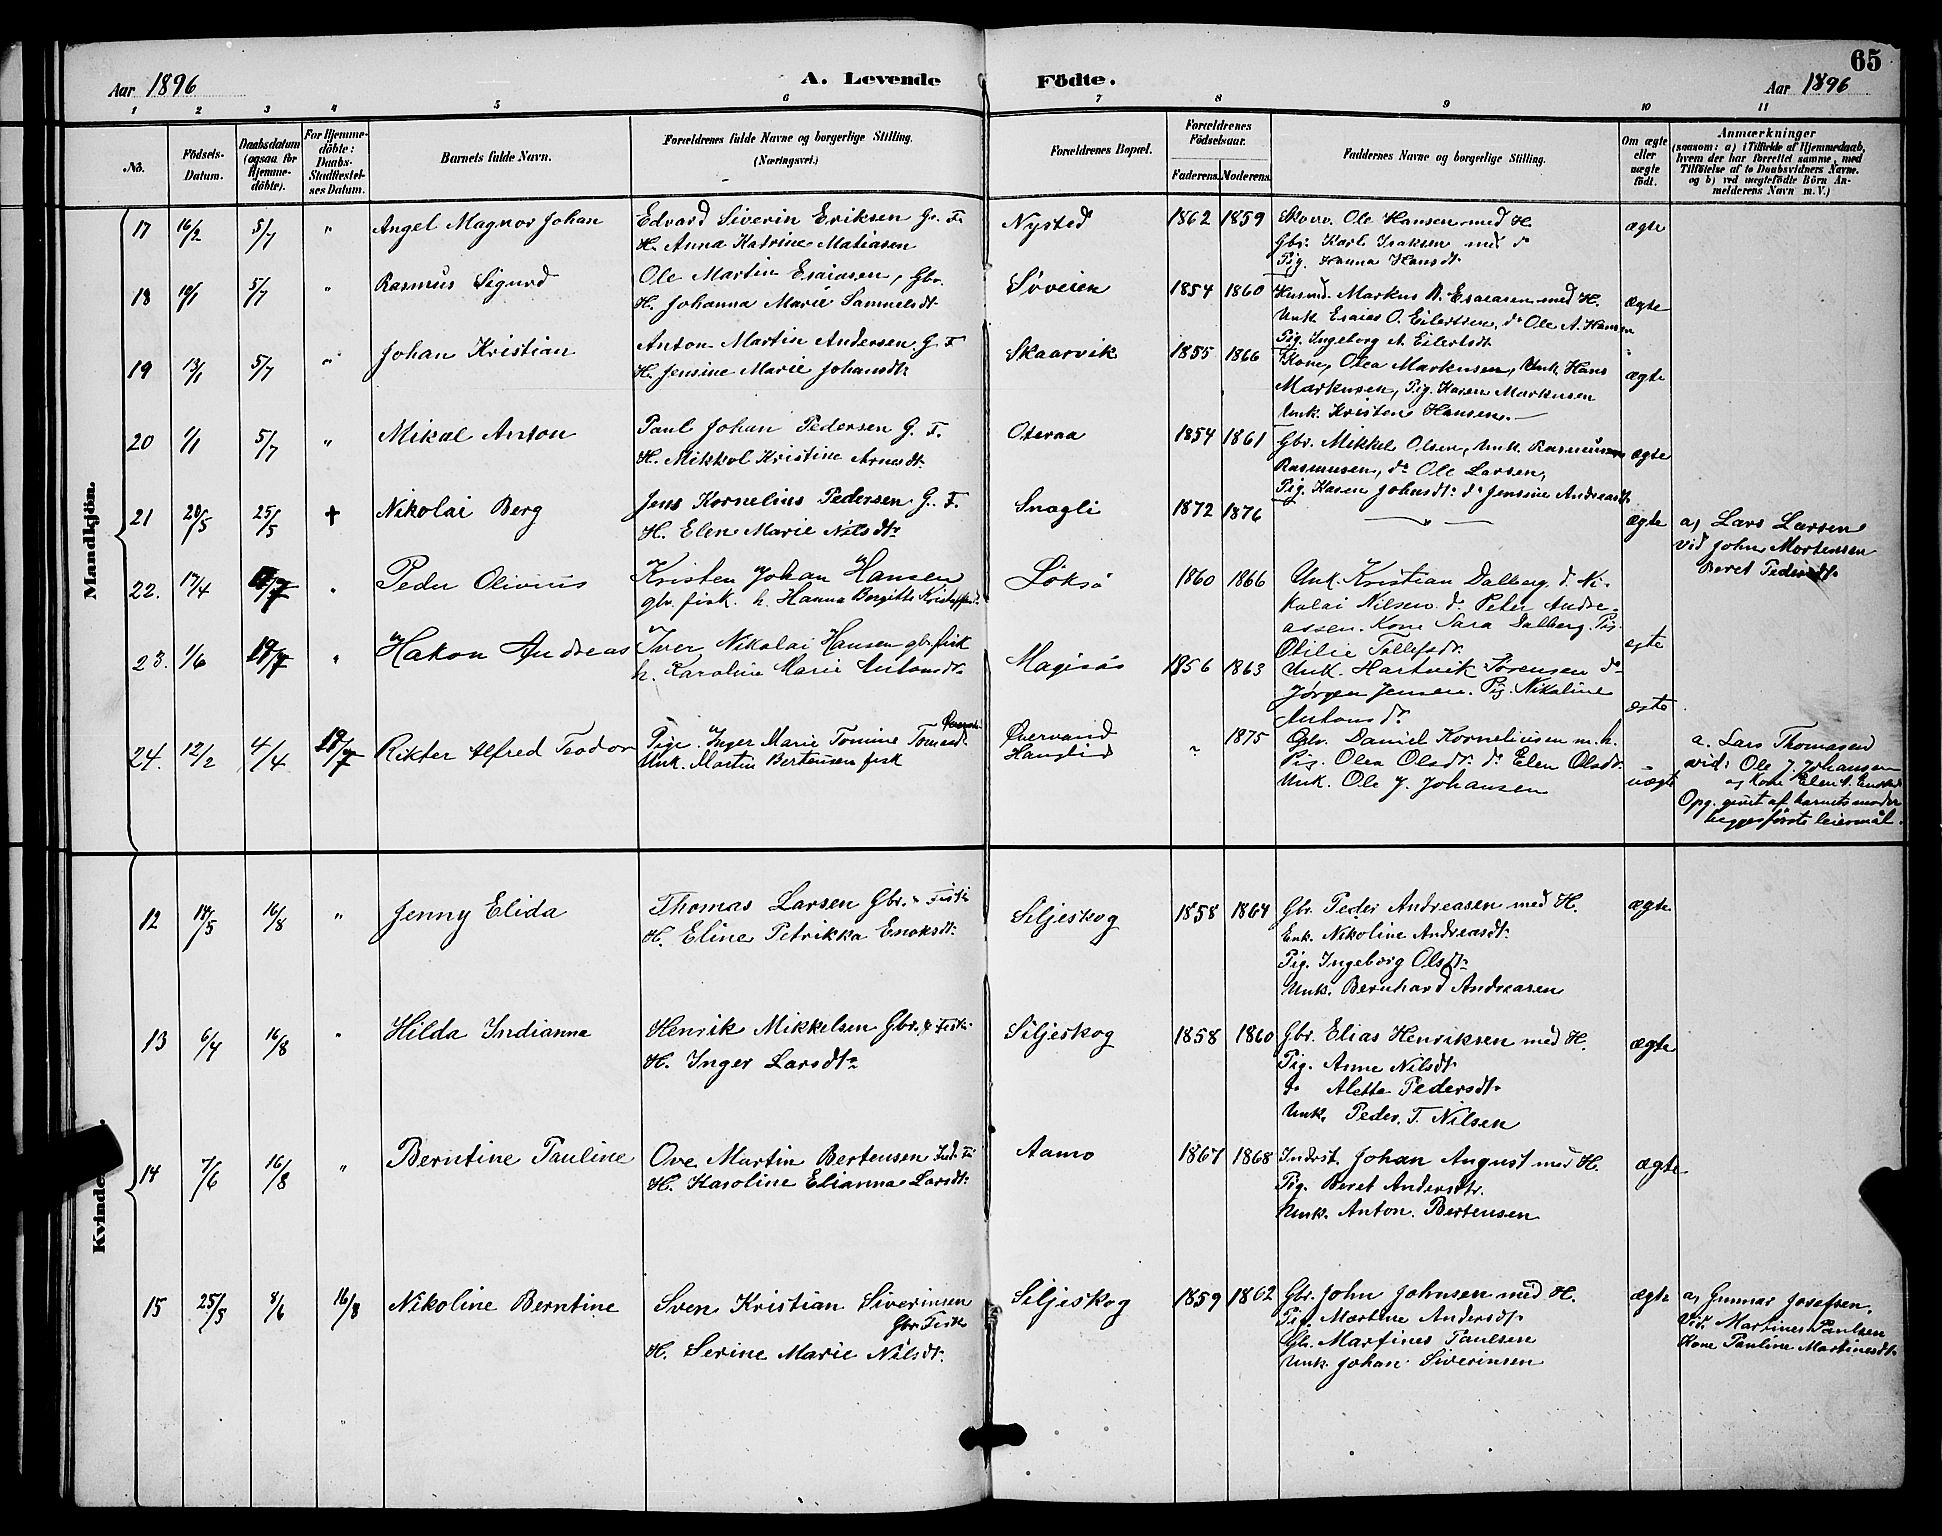 65
Aar 1896 A. Levende Födte. Aar 1896
1 2 3 4 5 6 7 8 9 10 11
No.
Födsels-
Datum.
Daabsdatum
(ogsaa for
Hjemme-
döbte).
For Hjemme-
döbte:
Daabs-
Stadfestel-
ses Datum.
Barnets fulde Navn.
Forældrenes fulde Navne og borgerlige Stilling.
(Næringsvei.)
Forældrenes Bopæl.
Forældrenes
Födselsaar.
Faderens. Moderens.
Faddernes Navne og borgerlige Stilling.
Om ægte
eller
uægte
födt.
Anmærkninger
(saasom: a) i Tilfælde af Hjemmedaab,
hvem der har forrettet samme, med
Tilföielse af to Daabsvidners Navne.
og b) ved uægtefödte Börn An-
melderens Navn m. V.)
Mandkjön.
17 16/2 5/7 " Angel Magnor Johan
Edvard Siverin Eriksen G. F.
H. Anna Katrine Matiasen
Nysted 1862 1859
Ole Hansen med H.
Gbr. Karl Isaksen med do
Pig. Hanna Hansdt.
ægte
18 10/1 5/7 " Rasmus Sigurd
Ole Martin Esaiasen, Gbr.
H. Johanna Marie Samuelsdt
Söveien 1854 1860
Husmd. Markus B. Esaiasen med H.
Unk Esaias O. Eilertsen, do Ole A. Hansen
Pig. Ingeborg A. Eilertsdt.
ægte
19 13/1 5/7 " Johan Kristian
Anton Martin Andersen G. F
H. Jensine Marie Johansdt.
Skaarvik 1855 1866
Kone, Olea Markusen, Unk. Hans
Markusen, Pig. Karen Markusen
Unk. Kristen Hansen.
ægte
20 1/1 5/7 " Mikal Anton
Paul Johan Pedersen G. F.
H. Mikkol Kristine Arnesdt.
Oteraa 1854 1861
Gbr. Mikkel Olsen, Unk. Rasmus
Rasmusen, do Ole Larsen,
Pig. Karen Johnsdt. do Jensine Andreasdt.
ægte
21 20/5 25/5 + Nikolai Berg
Jens Kornelius Pedersen G. F.
H. Elen Marie Nilsdt.
Snagli 1872 1876
ægte
a, Lars Larsen
vid John Mortensen
Beret Pedersdt.
22. 17/4 " Peder Olivius
Kristen Johan Hansen
gbr. fisk. h. Hanna Bergitte
Löksö 1860 1866
Unk. Kristian Dalberg. do Ni-
kolai Nilsen. do Peter Andre-
assen. Kone Sara Dalberg. Pig.
Otilie Tollefsdt.
egte
23. 1/6 19/7 " Håkon Andreas
Iver Nikolai Hansen gbr. fisk
h. Karoline Marie Antonsdt.
1856 1863
Unk. Hartvik Sørensen do
Jørgen Jensen. Pig. Nikoline
Antonsdt.
egte
24. 12/2 4/4 19/7 Rikter Alfred Teodor
Pige. Inger Marie Tomine
Unk. Martin Berteussen fisk
Øvervand
" 1875
Gbr. Daniel Korneliusen m. h.
Pig. Olea Olsdt. do Elen Olsdt.
Unk. Ole J. Johansen
uægte
a. Lars Thomasen
vid: Ole J. Johansen
og Kone Elen
Opg. givet af barnets moder
begges første leiermål.
Kvinde
12 14/5 16/8 " Jenny Elida
Thomas Larsen Gbr. & Fisk.
H. Eline Petrikka Enoksdt.
Siljeskog 1858 1864
Gbr. Peder Andreasen med H.
Enk. Nikoline Andreasdt.
Pig. Ingeborg Olsdt.
Unk. Bernhard Andreasen
ægte
13 6/4 16/8 " Hilda Indianna
Henrik Mikkelsen Gbr. & Fisk.
H. Inger Larsdt.
Siljeskog 1858 1860
Gbr. Elias Henriksen med H.
Pig. Anne Nilsdt.
do Aletta Pedersdt.
Unk. Peder. T. Nilsen
ægte
14 7/6 16/8 " Berntine Pauline
Ove Martin Berteusen
H. Karoline Elianna Larsdt.
Aamo 1867 1868
Indrst. Johan August med H.
Pig. Beret Andersdtr.
Unk. Anton. Berteusen
ægte
15 25/5 8/6 16/8 Nikoline Berntine
Sven Kristian Siverinsen
Gbr. Fisk
H. Serine Marie Nilsdt.
Siljeskog 1859 1862
Gbr. John Johnsen med H.
Pig. Martine Andersdt.
Gbr. Martines Paulsen
Unk. Johan Siverinsen
ægte
a, Gunnar Josefsen.
Vid. Martines Paulsen
Kone Pauline Martinesdt.
"